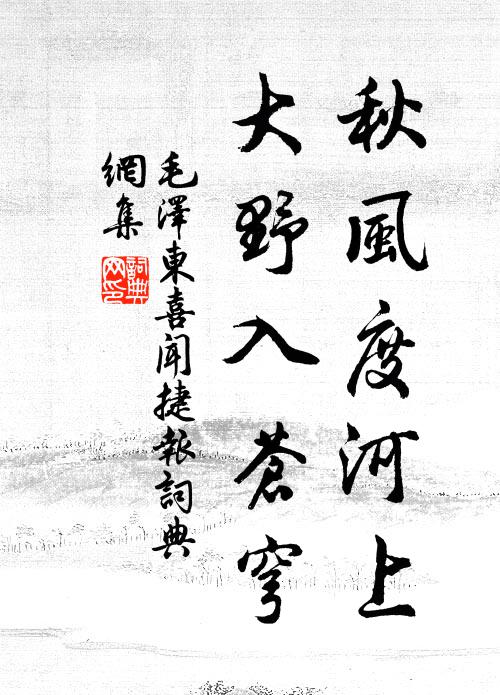 秋風度河上
大野入蒼穹
毛澤東喜聞捷報詞典
網集
詞典
网印